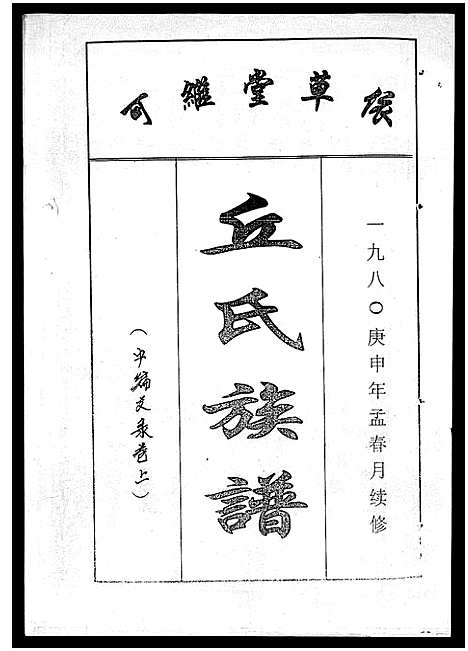 可繼堂草
一九八〇庚申年孟春月续修
丘氏族譜
（中编文录卷上）